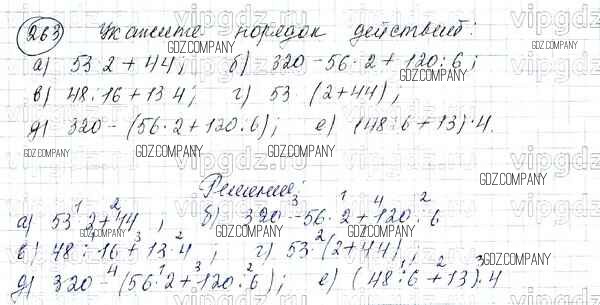 263 Укажите порядок действий:
а) 53·2+44; б) 320-56·2+120:6;
в) 48:16+13·4; г) 53·(2+44);
д) 320-(56·2+120:6); е) (48:6+13)·4.
Решение:
а) 53 ¹ 2 ² + 44; б) 320 ³ - 56 ¹ · 2 ⁴ + 120 ² : 6
в) 48 ¹ : 16 ³ + 13 ² · 4; г) 53 ² · (2 ¹ + 44);
д) 320 ⁴ - (56 ¹ · 2 ³ + 120 ² : 6); е) (48 ¹ : 6 ² + 13) ³ · 4
GDZ.COMPANY
vipgdz.ru